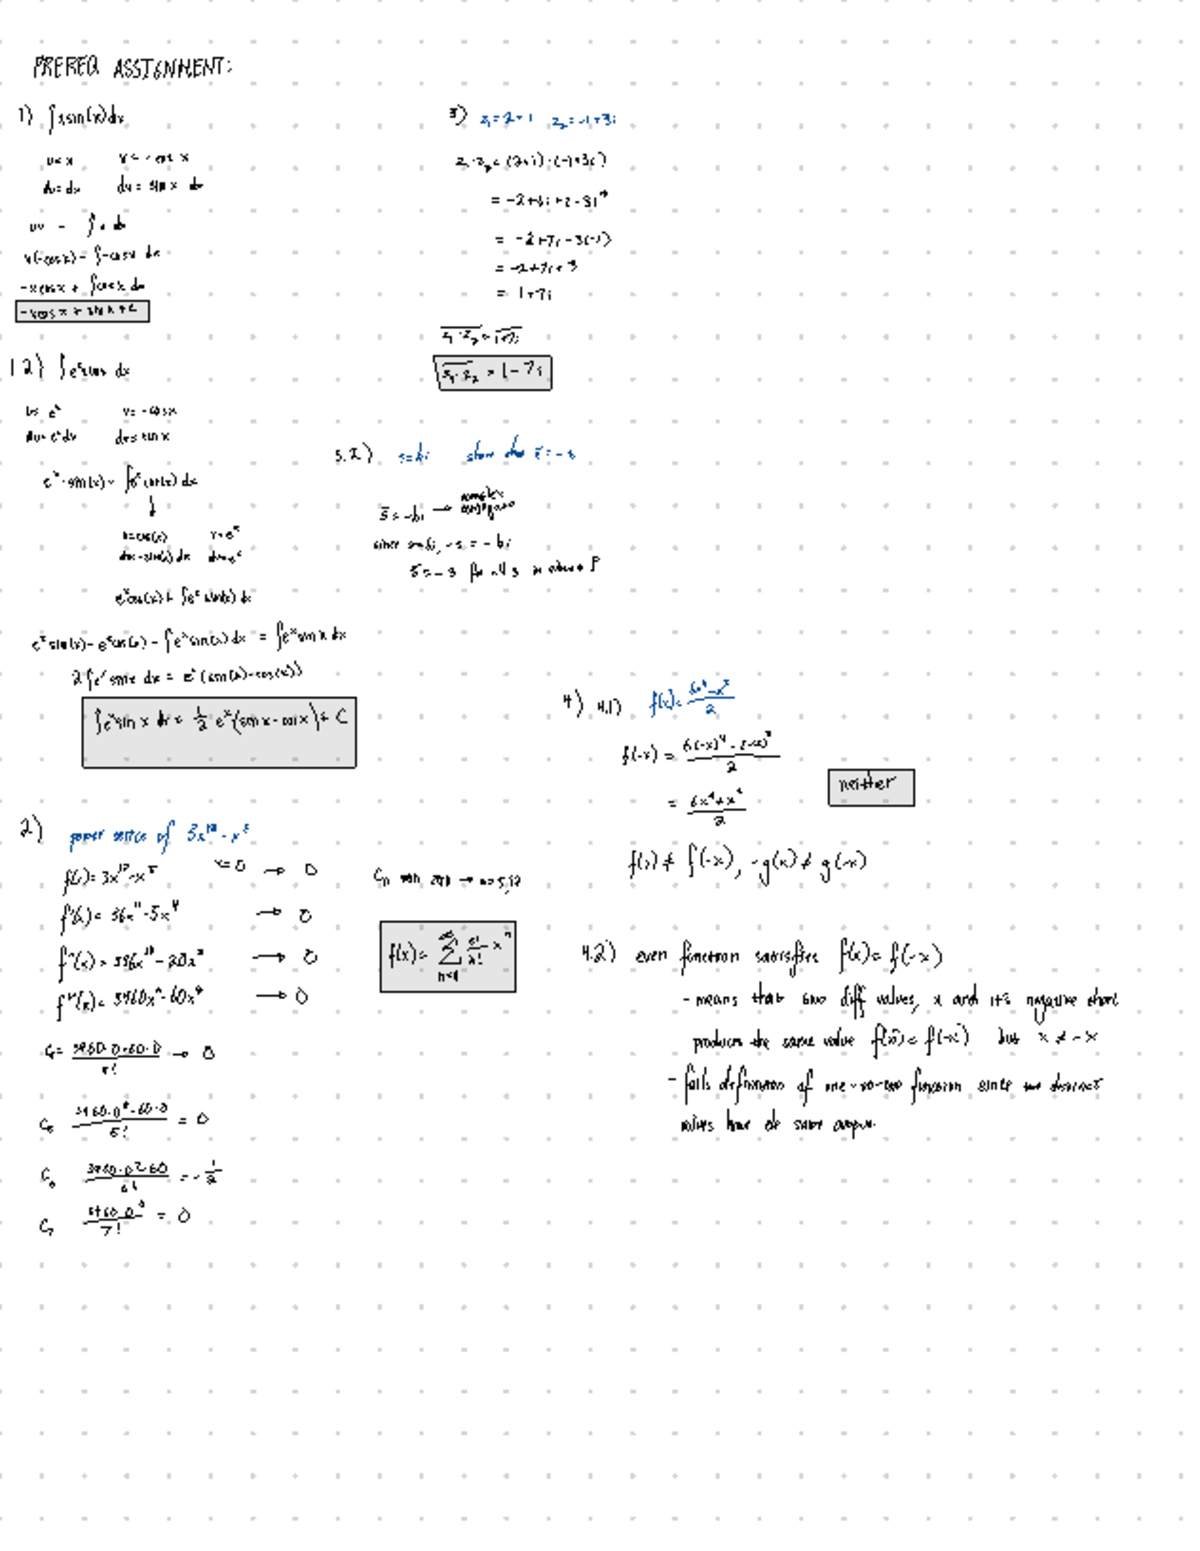 PREREQ ASSIGNMENT:
1) ∫xsin(x)dx
u=x v=-cos x
du=dx dv=sin x dx
uv - ∫v du
x(-cosx) - ∫-cosx dx
-xcosx + ∫cosx dx
-xcosx + sinx + C
1.2) ∫e^x sinx dx
u= e^x v=-cosx
du=e^x dx dv=sin x
e^x·sin(x) - ∫e^x cos(x) dx
u=cos(x) v=e^x
du=-sin(x) dx dv=e^x
e^x cos(x) + ∫e^x sin(x) dx
e^x sin(x) - e^x cos(x) - ∫e^x sin(x) dx = ∫e^x sin x dx
2∫e^x sinx dx = e^x (sin(x)-cos(x))
∫e^x sin x dx = 1/2 e^x (sin x - cos x) + C
2) power series of 3x^12 - x^5
f(x)= 3x^12 - x^5 x=0 → 0
f'(x)= 36x^11 - 5x^4 → 0
f''(x)= 396x^10 - 20x^3 → 0
f'''(x)= 3960x^9 - 60x^2 → 0
3960·0-60·0 / → 0
5!
3960·0^8-60·0 / 5! = 0
3960·0^2-60 / 6! = -1/2
C_7 3960·0^3 / 7! = 0
C_n non zero → n=5,12
f(x)= ∞ Σ x^n
3) z₁=2+i z₂=-1+3i
z₁·z₂=(2+i)·(-1+3i)
= -2+6i+i-3i^2
= -2+7i-3(-1)
= -2+7i+3
= 1+7i
z₁·z₂ = 1+7i
z₁·z₂ = 1-7i
3.2) s=bi show that s̄=-s
s̄=-bi → complex conjugate
since s=bi, -s=-bi
s̄=-s for all s
4) 4.1) f(x)= 6x^4-x^3 / 2
f(-x) = 6(-x)^4-(-x)^3 / 2
= 6x^4+x^3 / 2
neither
f(x)≠ f(-x), -g(x)≠ g(-x)
4.2) even function satisfies f(x)= f(-x)
- means that two diff values, x and it's negative
produces the same value f(x)= f(-x) but x ≠ -x
- fails definition of one-to-one function since two distinct
values have the same output.